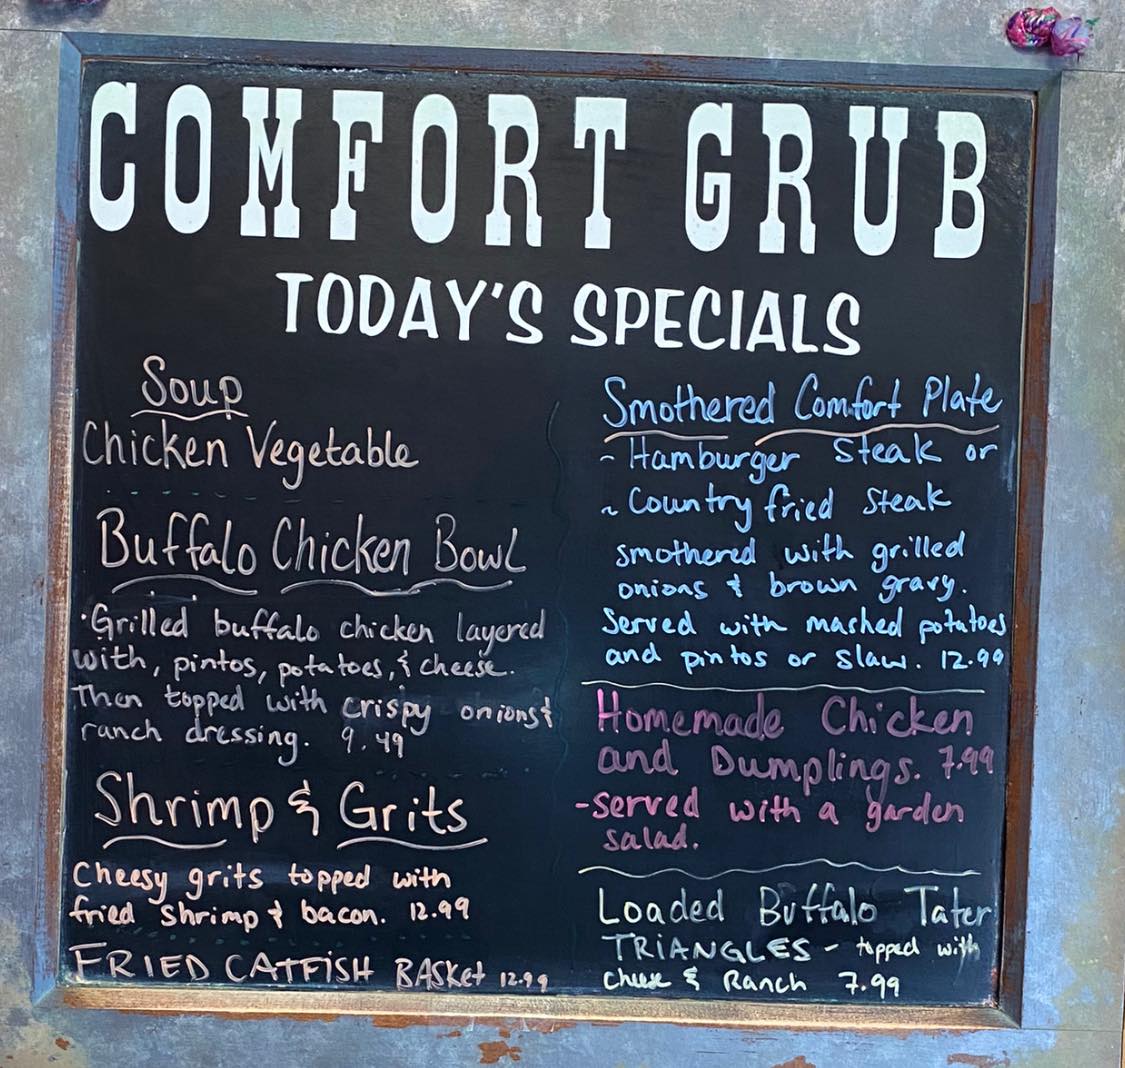 COMFORT GRUB
TODAY'S SPECIALS
Soup
Chicken Vegetable
Buffalo Chicken Bowl
·Grilled buffalo chicken layered
with, pintos, potatoes, & cheese.
Then topped with crispy onions &
ranch dressing. 9.49
Shrimp & Grits
Cheesy grits topped with
fried shrimp & bacon. 12.99
FRIED CATFISH BASket 12.99
Smothered Comfort Plate
~ Hamburger Steak or
~ Country fried Steak
smothered with grilled
onions & brown gravy.
Served with mashed potatoes
and pintos or slaw. 12.99
Homemade Chicken
and Dumplings. 7.99
-served with a garden
salad.
Loaded Buffalo Tater
TRIANGLES - topped with
cheese & Ranch 7.99